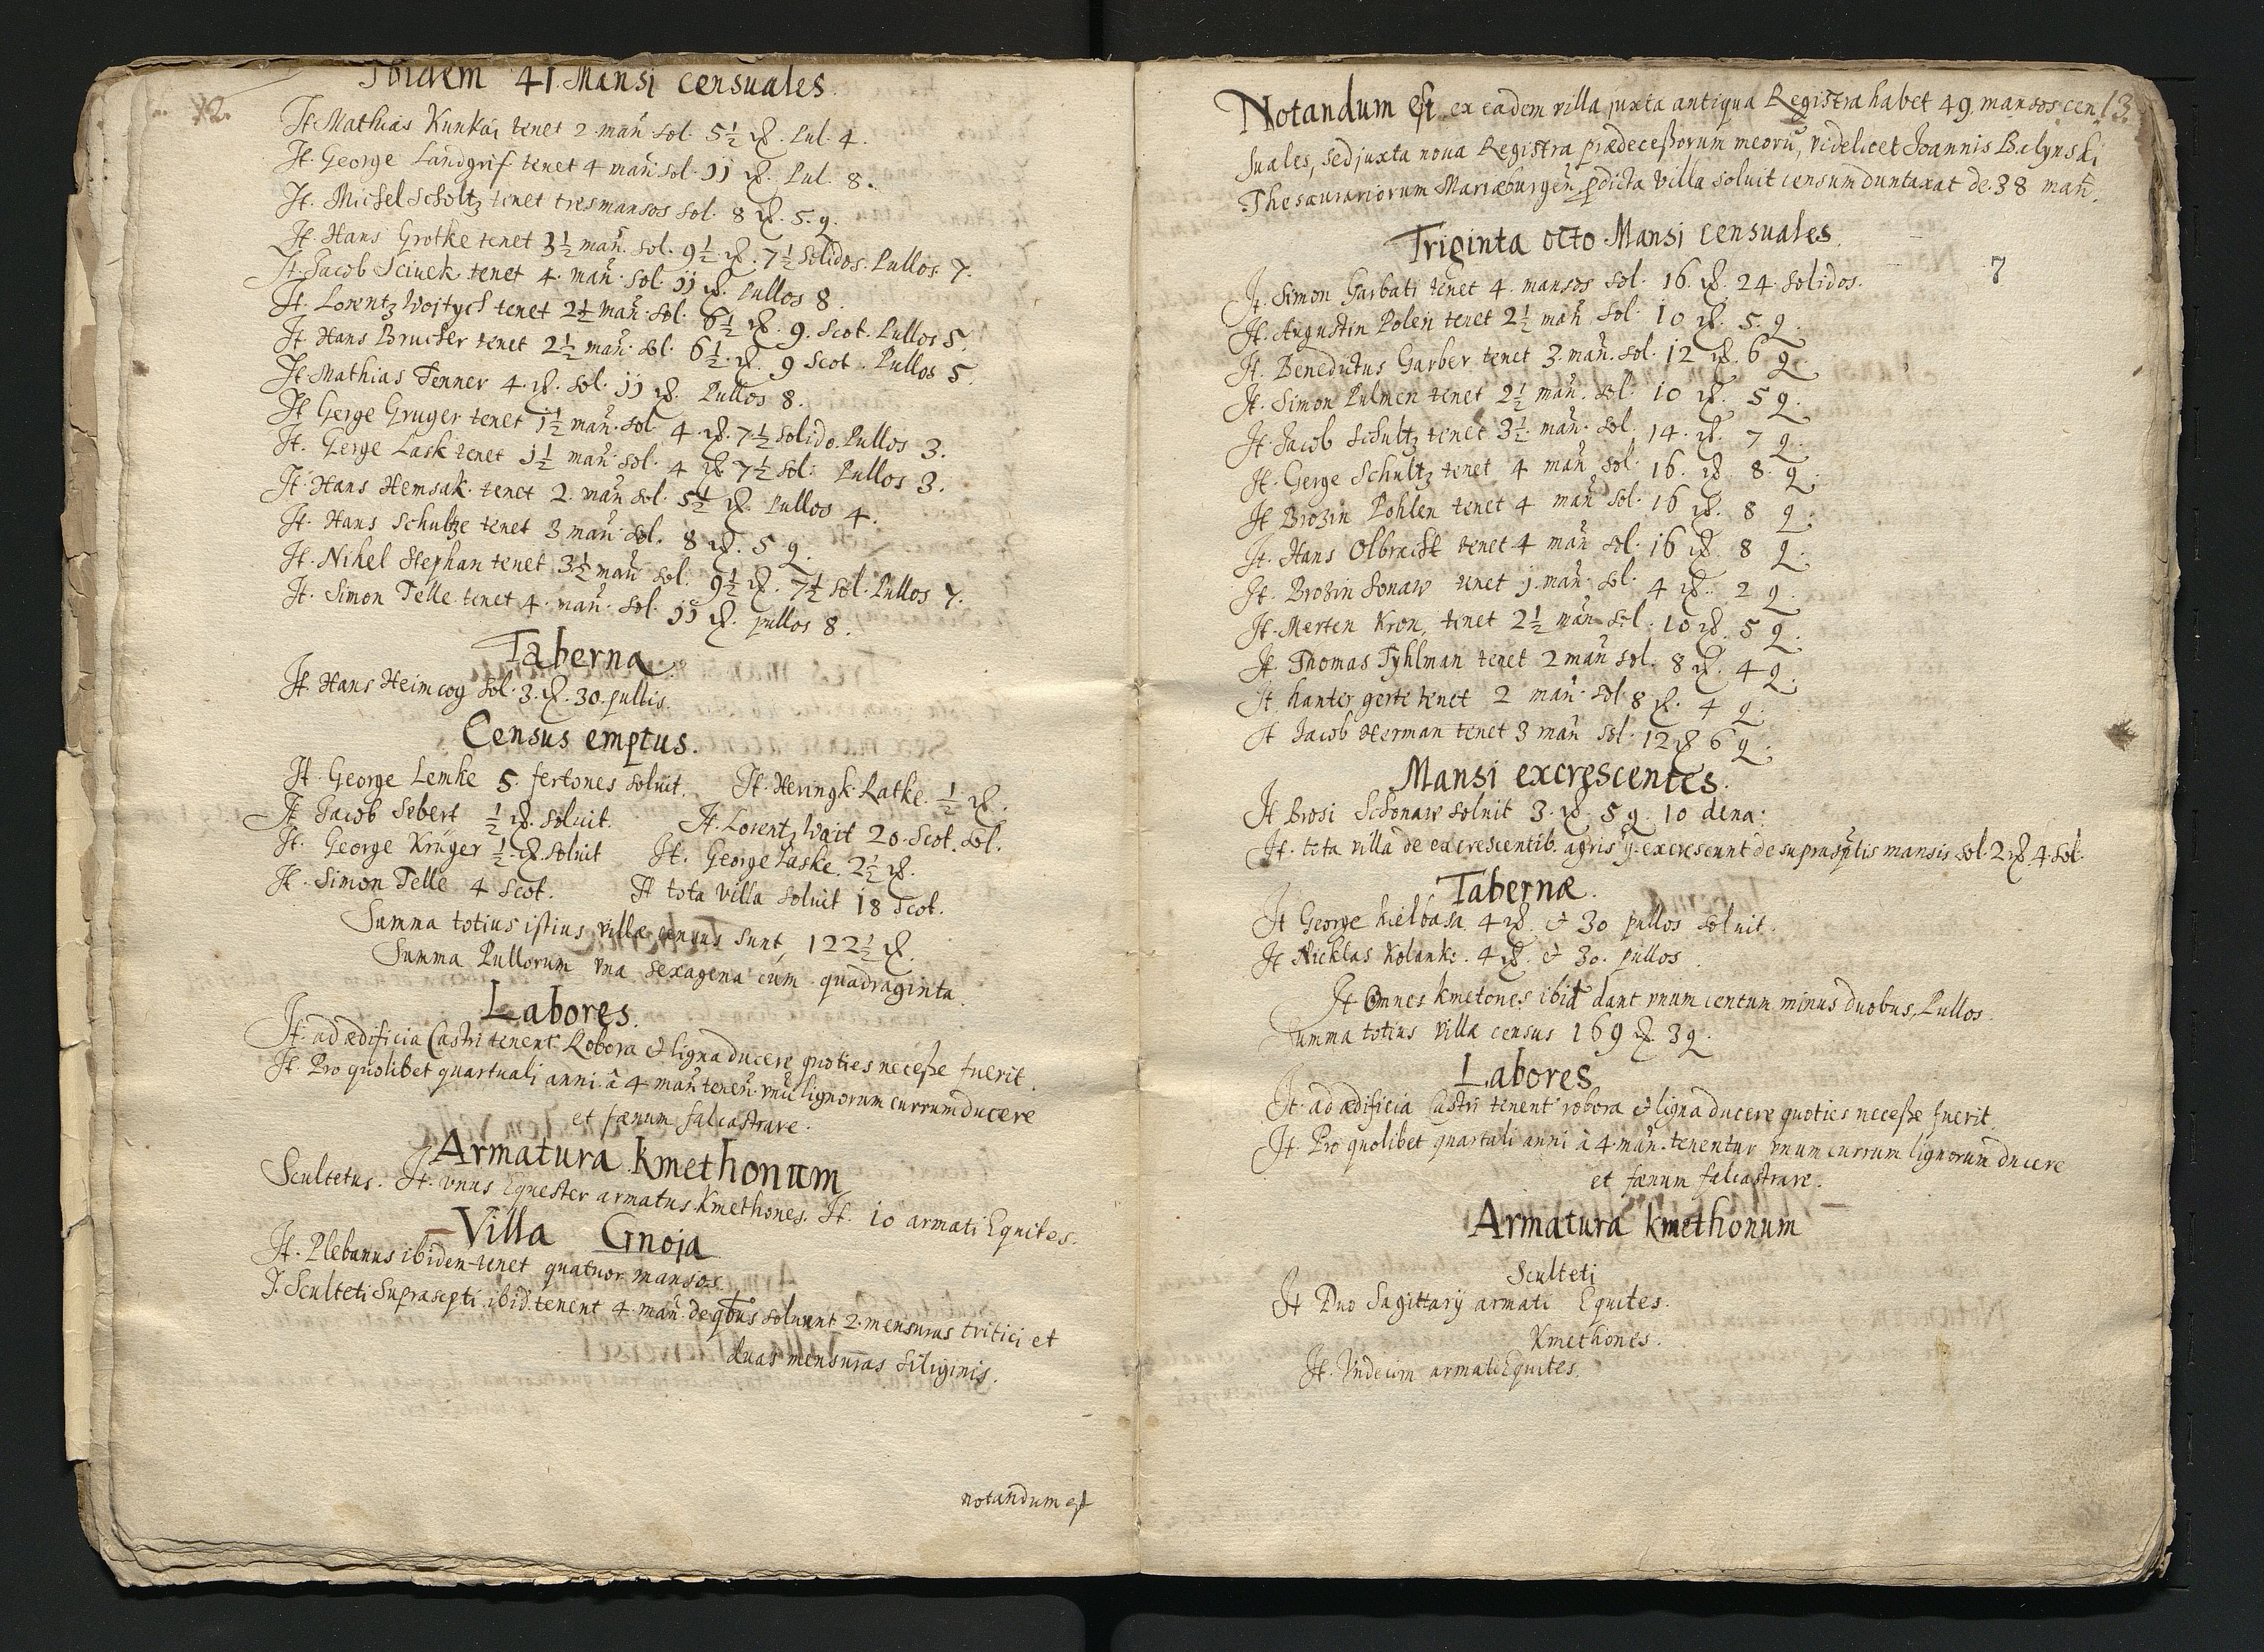 12.
Ibidem 41 Mansi censuales.
It Mathias Kunkai tenet 2 mañ sol. 5½ ℳ. Pul. 4.
It. George Landgrif tenet 4 mañ sol. 11 ℳ. Pul. 8.
It. Michel Scholtz tenet tres mansos sol. 8 ℳ. 5. q.
It. Hans Grotke tenet 3½ mañ. sol. 9½ ℳ. 7½ Solidos. Pullos. 7.
It. Jacob Sciuek tenet 4. mañ. sol. 11 ℳ. Pullos 8.
It. Lorentz Wojtych tenet 2½ mañ. sol. 6½ ℳ. 9. Scot. Pullos 5.
It. Hans Brucher tenet 2½ mañ. sol. 6½ ℳ. 9 Scot. Pullos 5.
It Mathias Tenner 4. ℳ. sol. 11 ℳ. Pullos 8.
It Gerge Gruger tenet 1½ mañ. sol. 4. ℳ. 7½ solido. Pullos 3.
It. Gerge Lask tenet 1½ mañ. sol. 4 ℳ 7½ sol. Pullos 3.
It. Hans Hemsak tenet 2. mañ sol. 5½ ℳ. Pullos 4.
It. Hans Schultze tenet 3 mañ. sol. 8 ℳ. 5 q.
It. Nikel Stephan tenet 3½ mañ sol. 9½ ℳ. 7½ sol. Pullos 7.
It. Simon Telle tenet 4. mañ. sol. 11 ℳ. pullos 8.
Taberna.
It. Hans Heimcog sol. 3. ℳ. 30. pullis.
Census emptus.
It. George Lemke 5 fertones soluit. It. Heringk Ratke. ½ ℳ.
It Jacob Sebert ½ ℳ. soluit. It. Lorentz Wait 20. Scot. sol.
It. George Krüger ½ ℳ. soluit It. George Laske. 2½ ℳ.
It. Simon Telle 4 Scot. It tota villa soluit 18 Scot.
Summa totius istius villæ census sunt 122½ ℳ.
Summa Pullorum vna sexagena cum quadraginta.
Labores.
It. ad ædificia Castri tenent Robora et ligna ducere quoties necesse fuerit.
It. Pro quolibet quartuali anni à 4 mañ teneñ. vnũ lignorum currum ducere
et fœnum falcastrare.
Armatura Kmethonum
Scultetus. It. vnus Equester armatus. Kmethones. It. 10 armati Equites.
Villa Gnoja
It. Plebanus ibidem tenet quatuor mansos.
I. Sculteti Suprascpti ibid. tenent 4. mañ. de qbus soluunt 2. mensuras tritici et
duas mensuras siliginis.
notandum est
13.
Notandum est ex eadem villa juxta antiqua Registra habet 49. mansos cen
suales, sed juxta noua Registra prædecessorum meorũ, videlicet Joannis Balynski
Thesaurariorum Mariæburgeñ pdicta villa soluit censum duntaxat de 38 mañ.
Triginta octo Mansi censuales.
7
It. Simon Garbati tenet 4. mansos sol. 16. ℳ. 24. solidos.
It. Augustin Polen tenet 2½ mañ sol. 10 ℳ. 5. q.
It. Benedictus Garber tenet 3. mañ. sol. 12 ℳ. 6 q.
It. Simon Pulmen tenet 2½ mañ. sol. 10 ℳ. 5 q.
It. Jacob Schultz tenet 3½ mañ. sol. 14. ℳ. 7 q.
It. Gerge Schultz tenet 4 mañ sol. 16. ℳ 8. q.
It Brosin Pohlen tenet 4 mañ sol. 16 ℳ. 8 q.
It. Hans Olbracht tenet 4 mañ sol. 16 ℳ 8 q.
It. Brosin Sonaw tenet 1. mañ. sol. 4 ℳ. 2 q.
It. Merten Kron, tenet 2½ mañ sol. 10 ℳ. 5 q.
It. Thomas Tyhlman tenet 2 mañ sol. 8 ℳ. 4 q.
It. hanter gerte tenet 2 mañ. sol 8 ℳ. 4 q.
It Jacob Herman tenet 3 mañ sol. 12 ℳ 6 q.
Mansi excrescentes.
It Brosi Schonaw soluit 3. ℳ. 5 q. 10 dena:
It. tota villa de excrescentib. agris q excrescunt de suprascptis mansis sol. 2 ℳ. 4 sol.
Tabernæ.
It George kielbasa. 4 ℳ. et 30 pullos soluit.
It Nicklas Kolanke. 4 ℳ. et 30. pullos.
It Omnes kmetones ibid dant vnum centum minus duobus, Pullos.
Summa totius villæ census 169 ℳ. 3 q.
Labores
It. ad ædificia Castri tenent robora et ligna ducere quoties necesse fuerit.
It. Pro quolibet quartali anni à 4. mañ. tenentur vnum currum lignorum ducere
et fœnum falcastrare.
Armatura kmethonum
Sculteti
It Duo Sagittarij armati Equites.
Kmethones.
It. Vndecim armati Equites.